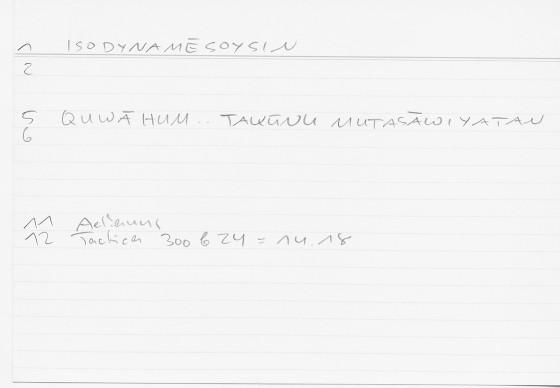 1 ISODYNAMĒSOYSIN
2
5 QUWĀHUM .. TAKŪNU MUTASĀWIYATAN
6
11 Aelianus
12 Tactica 300 b 24 = 14.18